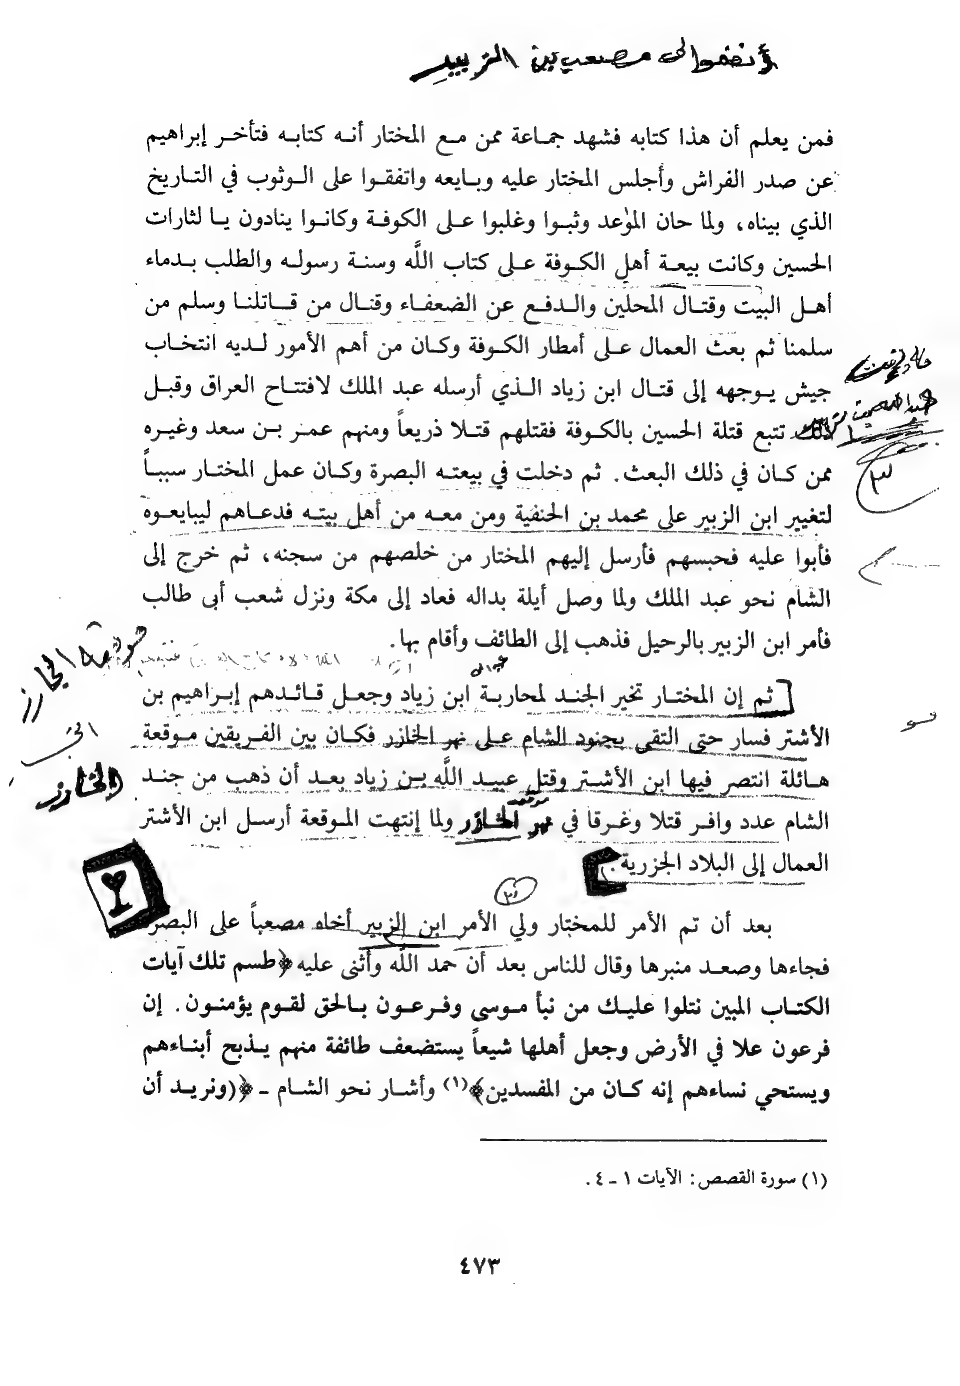 أنضموا لى مصعب بن الزبير
فمن يعلم أن هذا كتابه فشهد جماعة ممن مع المختار أنه كتابه فتأخر إبراهيم
عن صدر الفراش وأجلس المختار عليه وبايعه واتفقوا على الوثوب في التاريخ
الذي بيناه، ولما حان الموعد وثبوا وغلبوا على الكوفة وكانوا ينادون يا لثارات
الحسين وكانت بيعة أهل الكوفة على كتاب اللَّه وسنة رسوله والطلب بدماء
أهل البيت وقتال المحلين والدفع عن الضعفاء وقتال من قاتلنا وسلم من
سلمنا ثم بعث العمال على أمطار الكوفة وكان من أهم الأمور لديه انتخاب
جيش يوجهه إلى قتال ابن زياد الذي أرسله عبد الملك لافتتاح العراق وقبل
ذلك تتبع قتلة الحسين بالكوفة فقتلهم قتلا ذريعاً ومنهم عمر بن سعد وغيره
ممن كان في ذلك البعث. ثم دخلت في بيعته البصرة وكان عمل المختار سبباً
لتغيير ابن الزبير على محمد بن الحنفية ومن معه من أهل بيته فدعاهم ليبايعوه
فأبوا عليه فحبسهم فأرسل إليهم المختار من خلصهم من سجنه، ثم خرج إلى
الشام نحو عبد الملك ولما وصل أيلة بداله فعاد إلى مكة ونزل شعب أبى طالب
فأمر ابن الزبير بالرحيل فذهب إلى الطائف وأقام بها.
موقعة الخازر
ثم إن المختار تخير الجند لمحاربة ابن زياد وجعل قائدهم إبراهيم بن
الأشتر فسار حتى التقى بجنود الشام على نهر الخازر فكان بين الفريقين موقعة
هائلة انتصر فيها ابن الأشتر وقتل عبيد اللَّه بن زياد بعد أن ذهب من جند
الخازر
الشام عدد وافر قتلا وغرقا في نهر الخازر ولما إنتهت الموقعة أرسل ابن الأشتر
العمال إلى البلاد الجزرية.
بعد أن تم الأمر للمختار ولي الأمر ابن الزبير أخاه مصعباً على البصرة
فجاءها وصعد منبرها وقال للناس بعد أن حمد اللَّه وأثنى عليه ﴿طسم تلك آيات
الكتاب المبين نتلوا عليك من نبأ موسى وفرعون بالحق لقوم يؤمنون. إن
فرعون علا في الأرض وجعل أهلها شيعاً يستضعف طائفة منهم يذبح أبناءهم
ويستحي نساءهم إنه كان من المفسدين﴾(١) وأشار نحو الشام ـ ﴿(ونريد أن
(١) سورة القصص: الآيات ١ ـ ٤.
٤٧٣